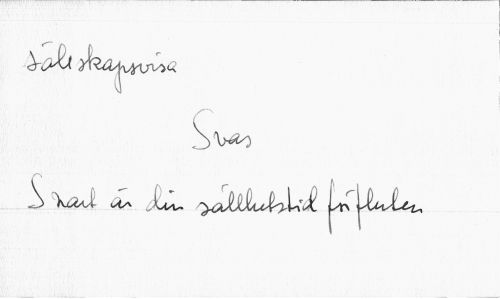 sällskapsvisa
Svar
Snart är din sällhetstid förfluten